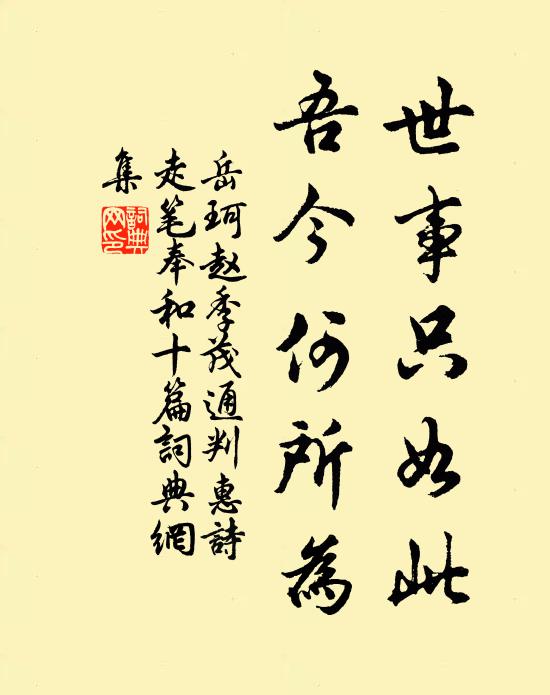 世事只如此
吾今何所為
岳珂赵季茂通判惠詩
走笔奉和十篇詞典網
集
詞典
网印